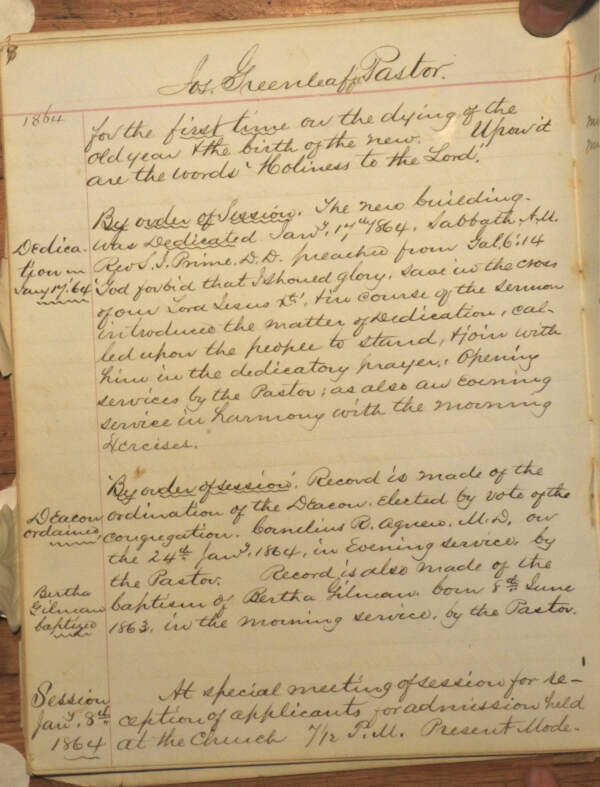 Jos. Greenleaf Pastor.
1864
for the first time on the dying of the
old year & the birth of the new. Upon it
are the words 'Holiness to the Lord.'
By order of Session. The new building
was Dedicated Jany. 17th 1864. Sabbath A.M.
Dedica-
tion on
Jany 17.'64
Rev S. I. Prime. D.D. preached from Gal. 6:14
'God forbid that I should glory, save in the cross
of our Lord Jesus Xt', & in course of the sermon
introduced the matter of Dedication, cal-
led upon the people to stand, & join with
him in the dedicatory prayer. Opening
services by the Pastor; as also an Evening
service in harmony with the morning
Exercises.
By order of session. Record is made of the
Deacon
ordained
ordination of the Deacon. Elected by vote of the
congregation. Cornelius R. Agnew. M.D. on
the 24th Jany. 1864, in Evening service, by
the Pastor. Record is also made of the
Bertha
Gilman
baptized
baptism of Bertha Gilman. born 8th June
1863, in the morning service, by the Pastor.
Session
Jany. 8th
1864
At special meeting of session for re-
ception of applicants for admission held
at the Church 7 1/2 P.M. Present Mode-